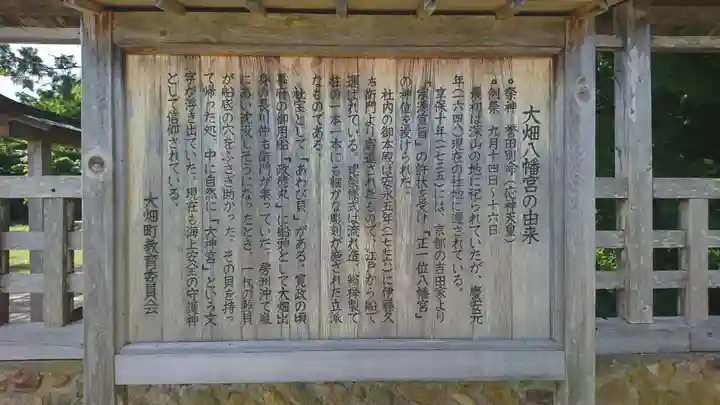 大畑八幡宮の由来
祭神 誉田別命(応神天皇)
例祭 九月十四日〜十六日
最初は深山の地に祀られていたが、慶安元
年(一六四八)現在の社地に遷されている。
享保十年(一七二五)には、京都の吉田家より
「宗源宣旨」の許状を受け「正一位八幡宮」
の神位を授けられた。
社内の御本殿は安永五年(一七七六)に伊藤久
右衛門より寄進されたもので、江戸から船で
運ばれている。建築様式は流れ造、総欅製で
柱の一本一本にも細かな彫刻が施された立派
なものである。
社宝として「あわび貝」がある。寛政の頃
幕府の御用船「政徳丸」に船頭として大畑出
身の長川仲右衛門が乗っていた。房州沖で嵐
にあい沈没し
になったとき、一枚の鮑貝
が船底の穴をふさぎ助かった。その貝を持っ
て帰った処、中に自然に「大神宮」という文
字が浮き出ていた。現在も海上安全の守護神
として信仰されている。
大畑町教育委員会